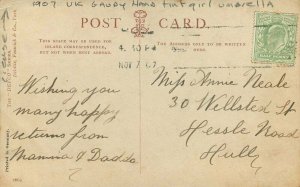 1907 UK Gaudy Hand Tint girl umbrella
POST CARD.
THIS SPACE MAY BE USED FOR
INLAND CORRESPONDENCE,
THE ADDRESS ONLY TO BE WRITTEN
HERE.
NOV 7 07
Wishing you
many happy
returns from
Mamma & Dadda
Miss Annie Neale
30 Willsted St
Hessle Road
Hull